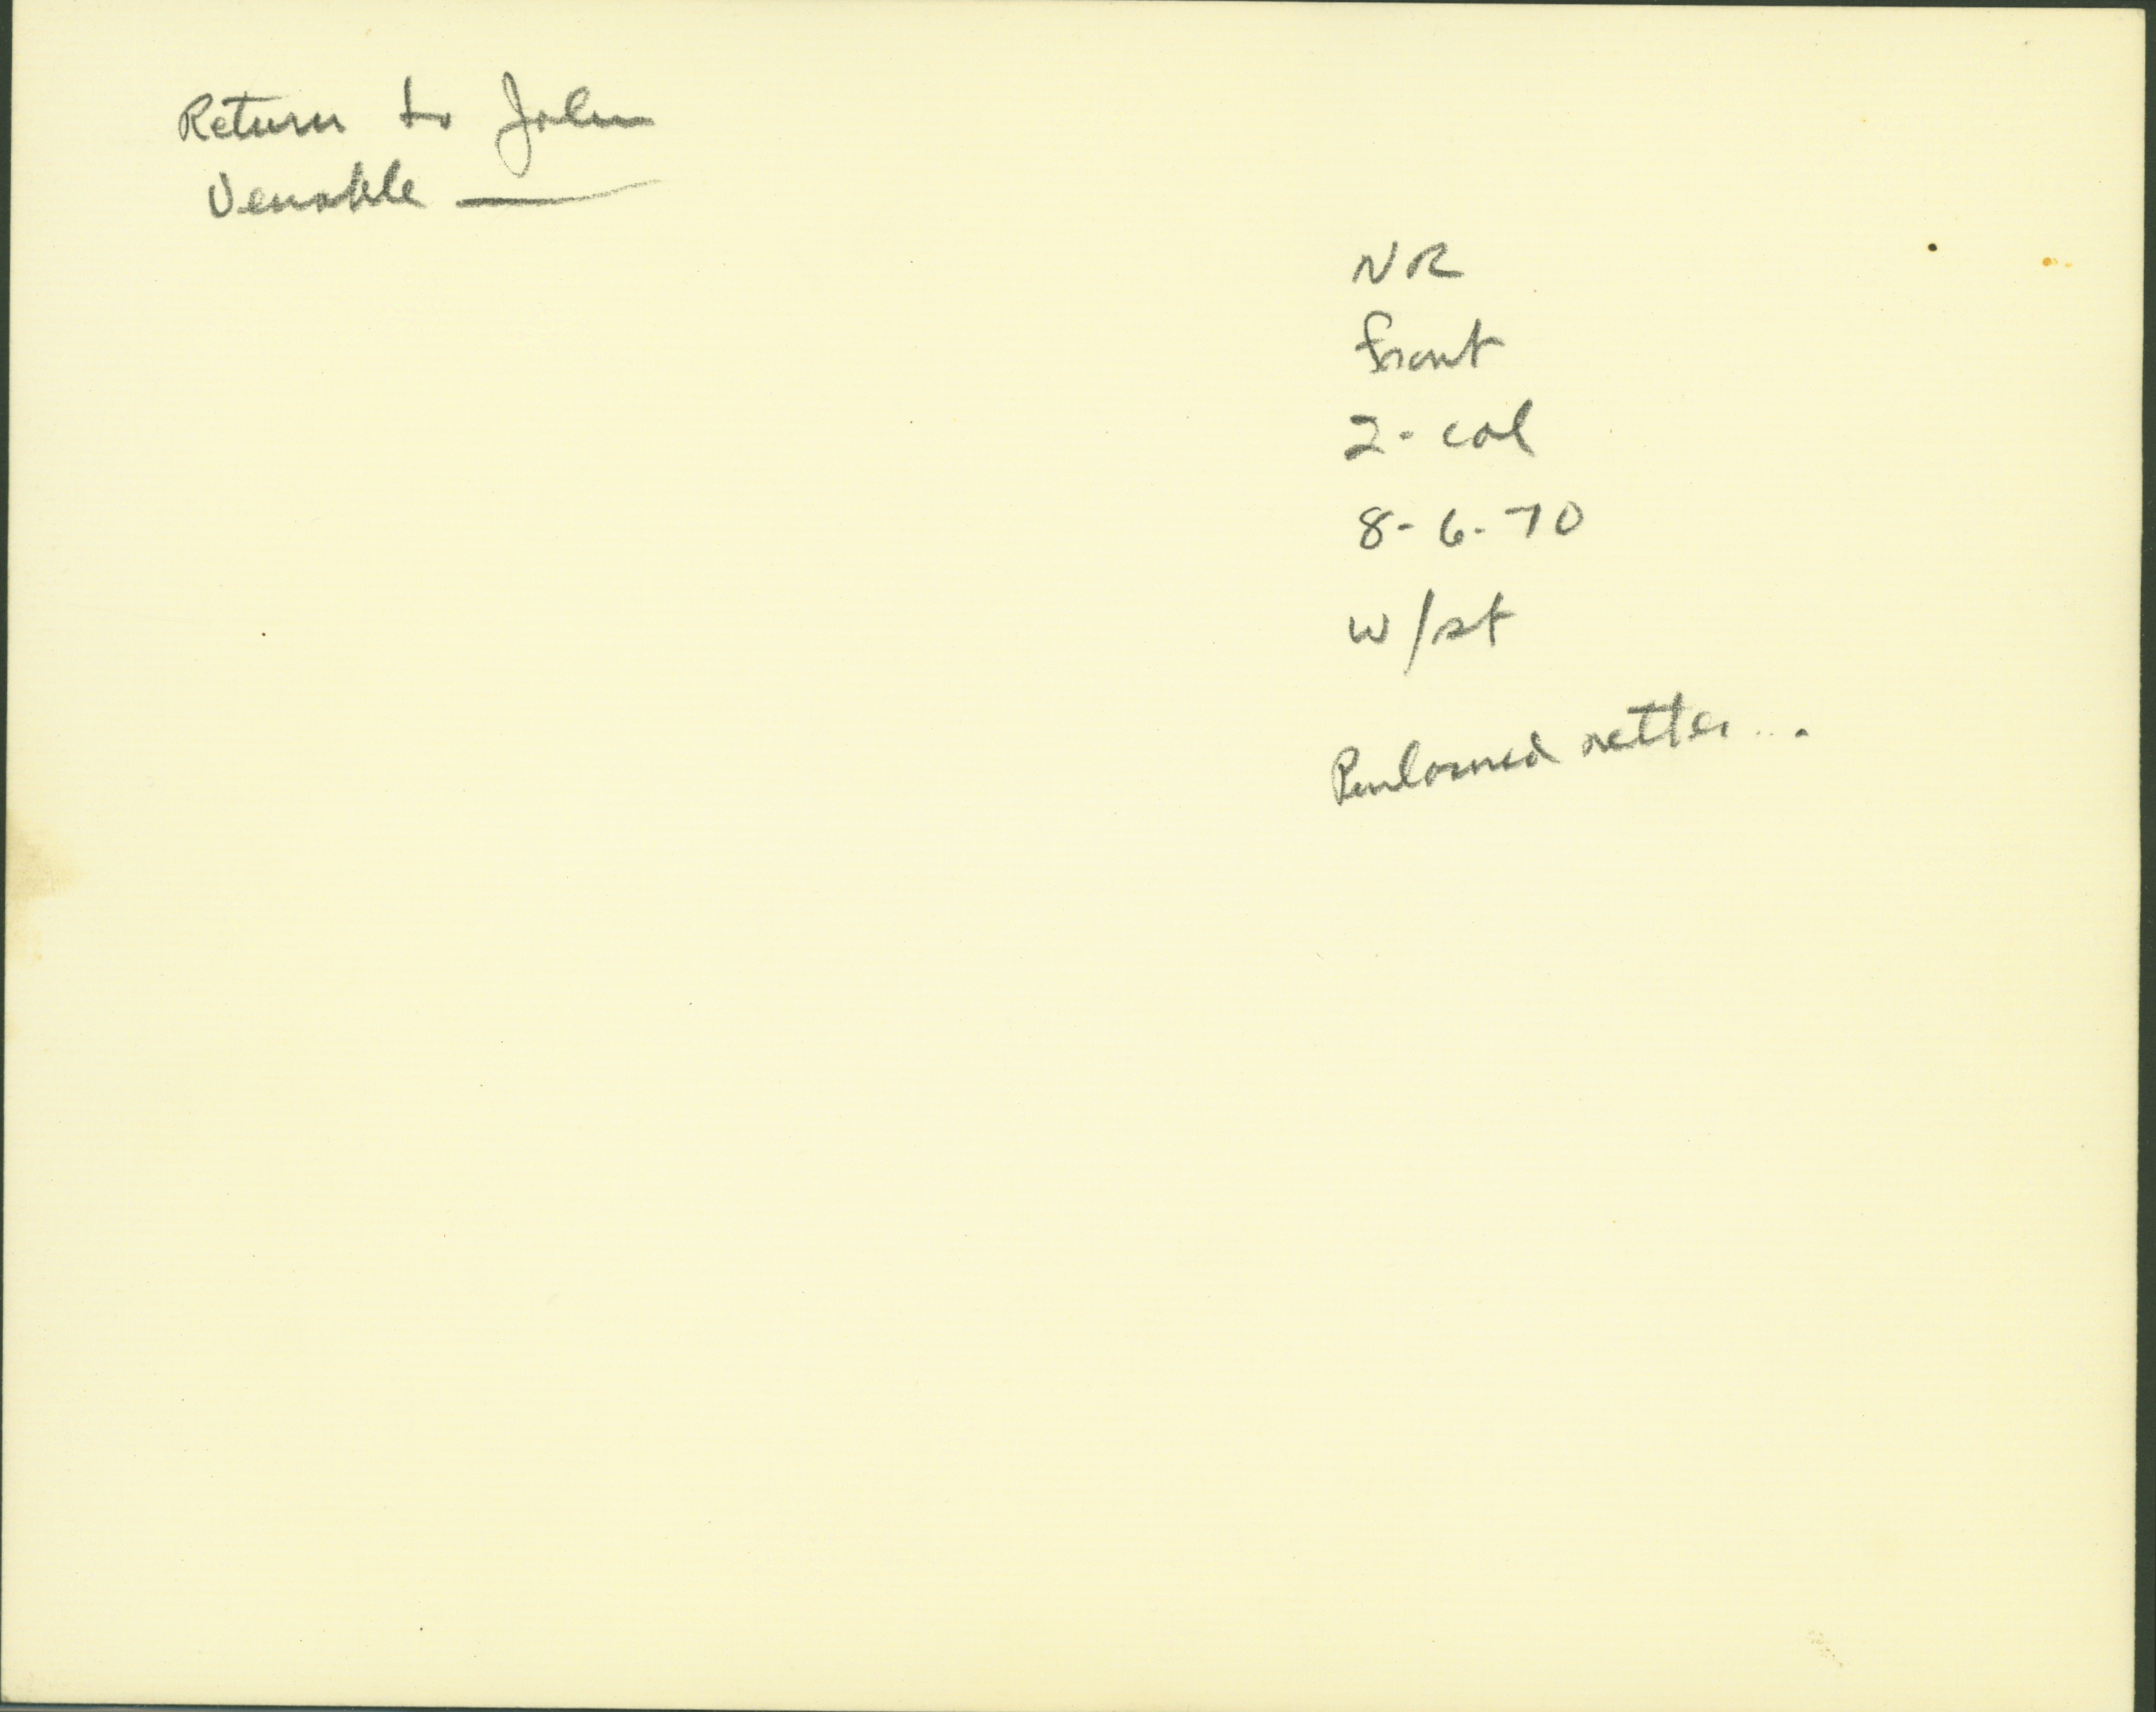 Return to John
Venable
NR
front
2-col
8-6-70
w/st
Renowned